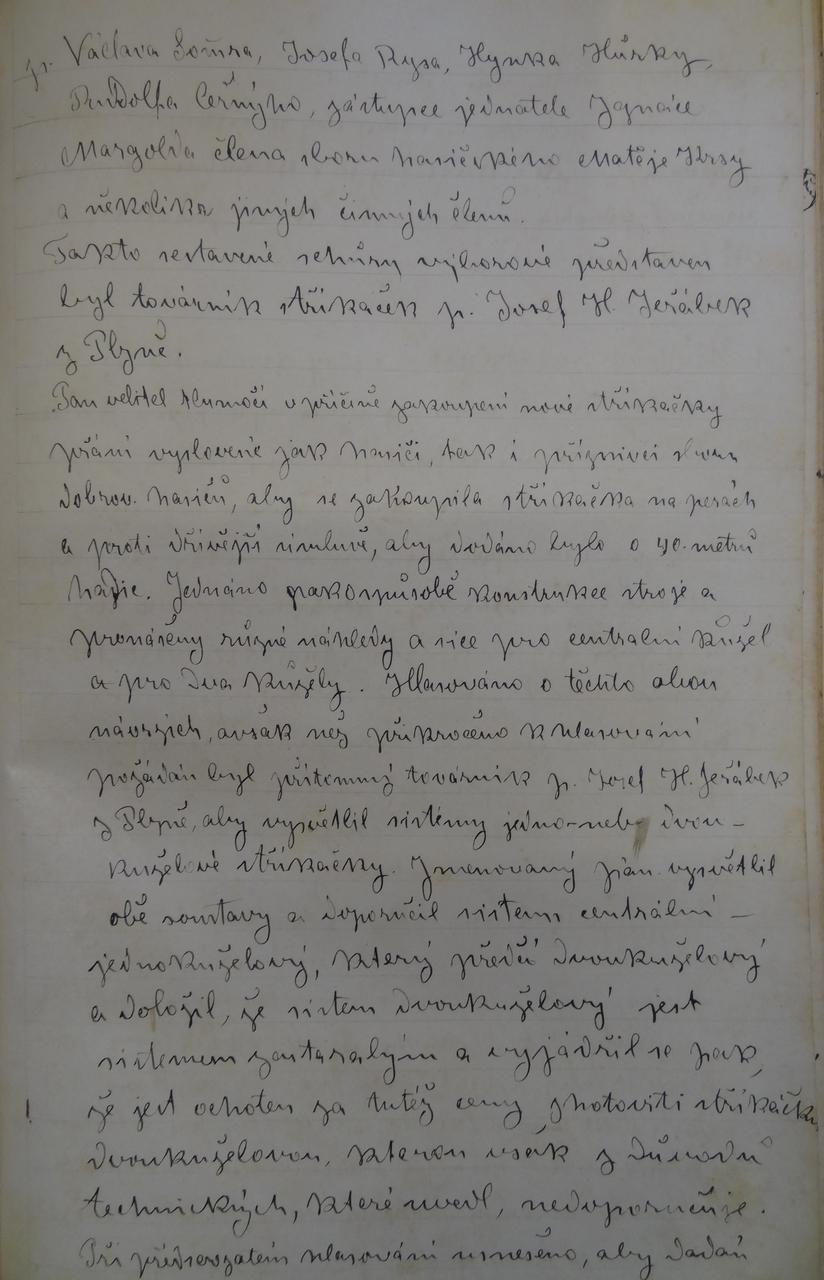 pp. Václava Soura, Josefa Rysa, Hynka Hůrky,
Rudolfa Černýho, zástupce jednatele Ignáce
Margolda člena sboru hasičského Matěje Krsy
a několika jiných činných členů.
Takto sestavené schůzy výborové představen
byl továrník stříkaček p. Josef H. Jeřábek
z Plzně.
Pan velitel tlumočí v příčině zakoupení nové stříkačky
přání vyslovené jak hasiči, tak i příznivci sboru
dobrov. hasičů, aby se zakoupila stříkačka na perách
a proti dřívější úmluvě, aby dodáno bylo o 40. metrů
hadic. Jednáno pak o způsobě konstrukce stroje a
pronášeny různé náhledy a sice pro centralní kůžel
a pro dva kůžely. Hlasováno o těchto obou
návrzích, avšak než přikročeno k hlasování
požádán byl přítomný továrník p. Josef H. Jeřábek
z Plzně, aby vysvětlil sistémy jedno-neb dvou-
kuželové stříkačky. Jmenovaný pán vysvětlil
obě soustavy a doporučil sistem centrální –
jednokuželový, který předčí dvoukuželový
a doložil, že sistem dvoukuželový jest
sistemem zastaralým a vyjádřil se pak,
že jest ochoten za tutéž cenu zhotoviti stříkačku
dvoukuželovou, kterou však z důvodů
technických, které uvedl, nedoporučuje.
Při předsevzatém hlasování usneseno, aby dodán